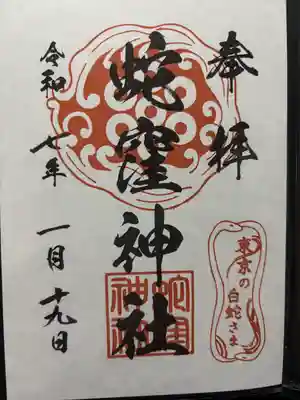 奉拝
蛇窪神社
令和七年一月十九日
東京の
白蛇さま